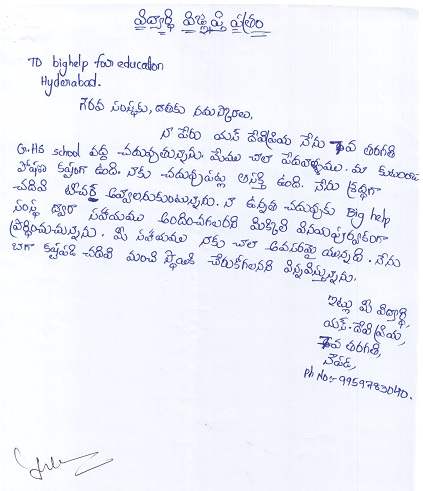 విద్యార్థి విజ్ఞప్తి పత్రం
TO bighelp for education
Hyderabad.
గౌరవ సంస్థకు, దాతకు నమస్కారాలు,
నా పేరు యస్ దేవిప్రియ నేను 7వ తరగతి
G.HS school వద్ద చదువుతున్నాను. మేము చాల పేదవాళ్ళము. మా కుటుంబ
పోషణ కష్టంగా ఉంది. నాకు చదువుపట్ల ఆసక్తి ఉంది. నేను శ్రద్ధగా
చదివి టీచర్ అవ్వాలనుకుంటున్నాను. నా ఉన్నత చదువుకు Big help
సంస్థ ద్వారా సహాయము అందించగలరని మిక్కిలి వినయపూర్వకంగా
ప్రార్థించుచున్నాను. మీ సహాయము నాకు చాల అవసరమై యున్నది. నేను
బాగా కష్టపడి చదివి మంచి స్థాయికి చేరుకోగలనని విన్నవిస్తున్నాను.
ఇట్లు మీ విద్యార్థి,
యస్. దేవిప్రియ,
7వ తరగతి,
Ph No:- 9959783040.